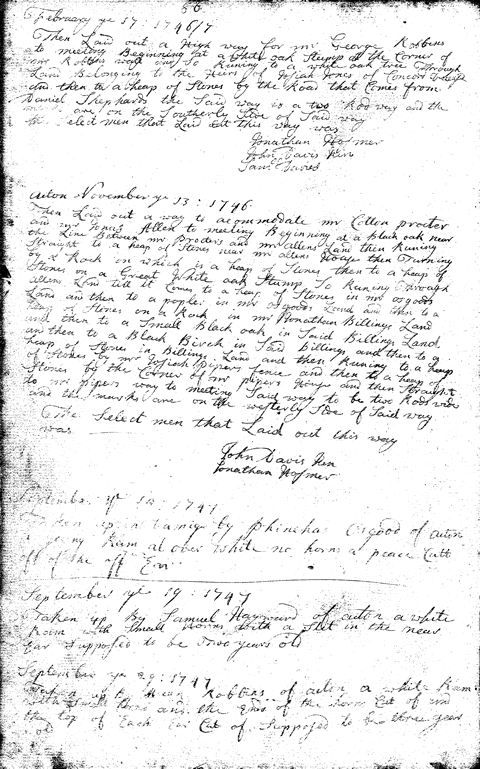 56
February ye 17: 1746/7
Then Laid out a High way for mr George Robbins
to meeting Beginning at a white oak Stump at the Corner of
mr Robbins wall and So Runing to a white oak tree through
Land Belonging to the Heirs of Josiah Jones of Concord
and then to a heap of Stones by the Road that Comes from
Daniel Shephards the Said way is a two Rod way and the
marks are on the Southerly Side of Said way
the Select men that Laid out this way was
Jonathan Hosmer
John Davis
Saml Davies
acton November ye 13: 1746
Then Laid out a way to acommodate mr Cotton procter
and mr Jonas Allen to meeting Beginning at a Black oak near
the Line Between mr Procters and mr allens Land then Runing
Straight to a heap of Stones near mr allens House then Turning
by a Rock on which is a heap of Stones then to a heap of
Stones on a Great white oak Stump So Runing Through
allens Land till it Comes to a heap of Stones in mr osgoods
Land and then to a popler in mr osgoods Land and then to a
heap of Stones on a Rock in mr Jonathan Billings Land
and then to a Small Black oak in Said Billings Land
an then to a Black Birch in Said Billings and then to a
heap of Stones in Billings Land and then Runing to a heap
of Stones by mr Josiah pipers fence and then to a heap of
Stones by the Corner of mr pipers House and then Straight
to mr pipers way to meeting Said way to be two Rods wide
and the marks are on the westerly Side of Said way
The Select men that Laid out this way
was
John Davis
Jonathan Hosmer
September ye 14: 1747
Taken up in Damige by phinehas Osgood of acton
a Ram all over white no horns a peace Cutt
off of the off Ear
September ye 19: 1747
Taken up By Samuel Hayward of acton a white
Ram with Small horns with a Slit in the near
Ear Supposed to be Two years old
September ye 29: 1747
Taken up Robbins of acton a white Ram
with Small horns and the End of the horns Cut of and
the top of Each Ear Cut of Supposed to be three year
old